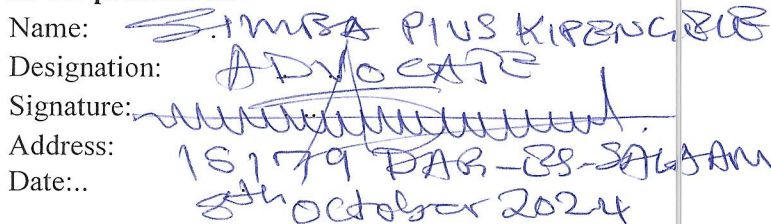 Name: SIMBA PIUS KIPENGELE
Designation: ADVOCATE
Signature:
Address: 15179 DAR-ES-SALAAM
Date:.. 8th October 2024